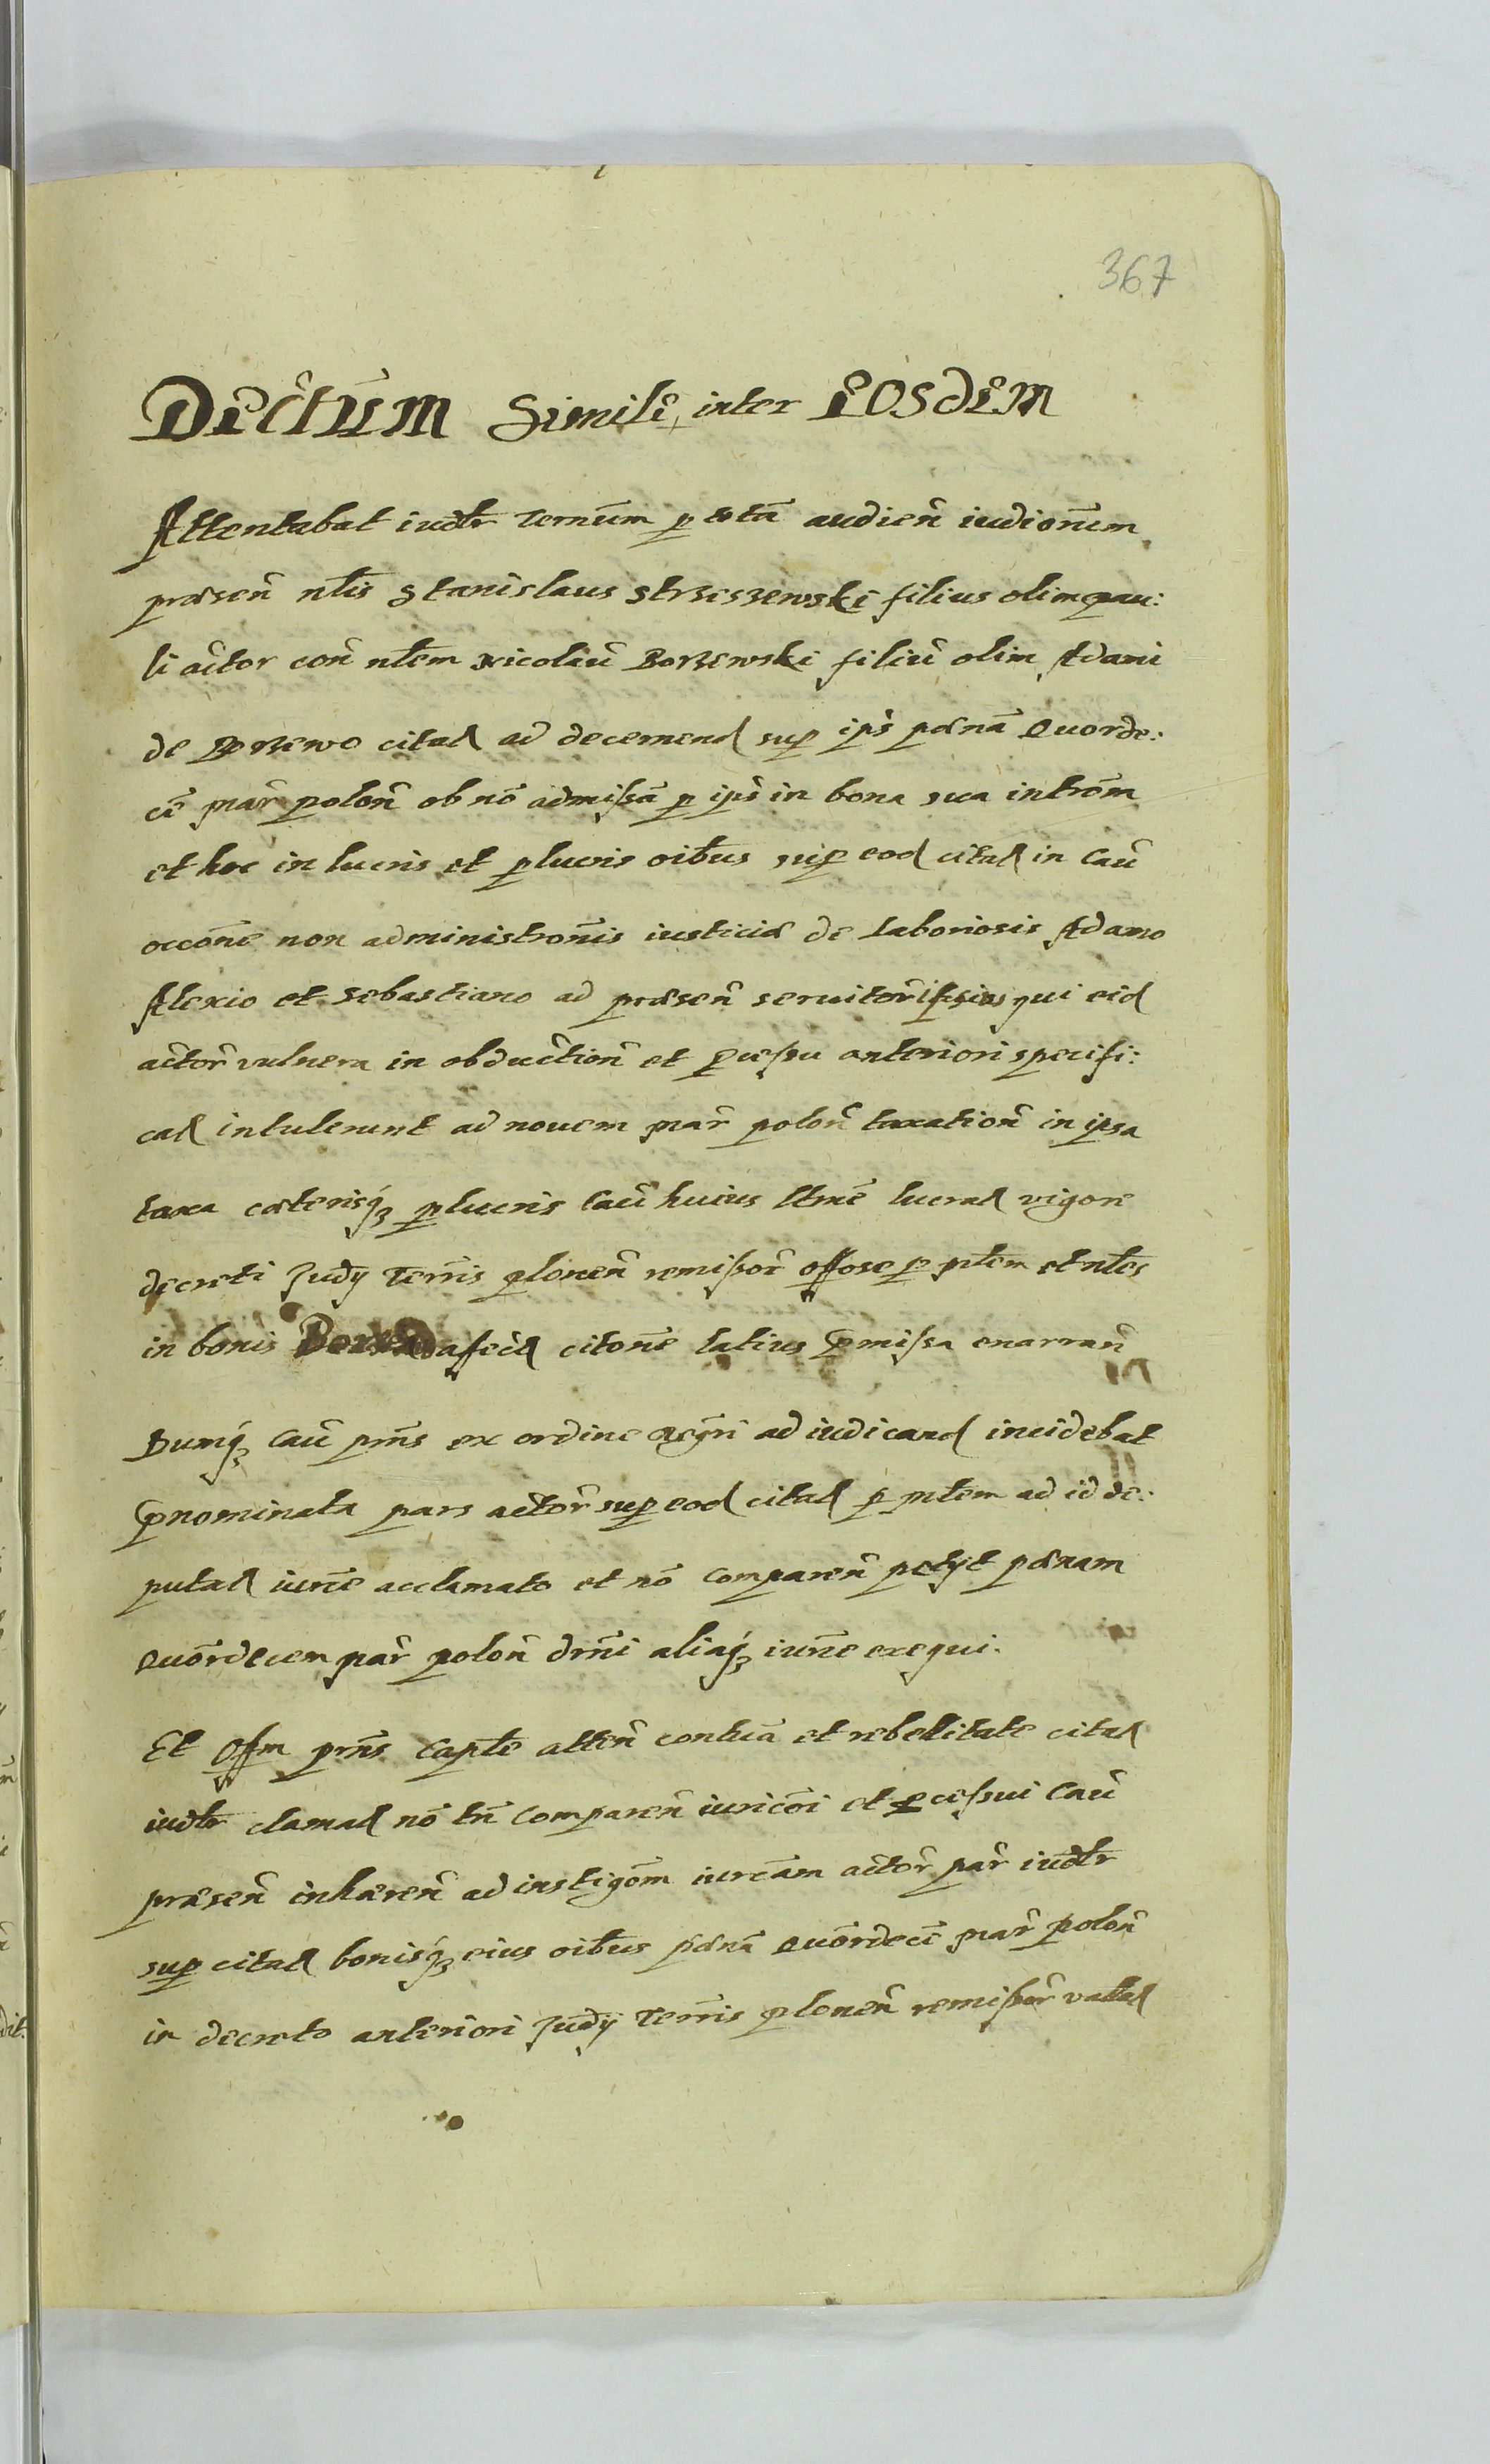 367
Decretum Simile inter EOSDEM
Attentabat iudtr termum p totã audień iudionem
præseń nłis Stanislaus Strzeszewski filius olim pau:
li actor coń nłem Nicolaũ Borzewski filiũ olim Adami
de Borzewo citad ad decernend sup ipõ pœnã quorde:
cẽ mar̃ poloń ob nõ admißã p ipõ in bona sua introm̃
et hoc in lucris et plucris oibus sup eod citad in cau
occone non administronis iusticiæ de laboriosis Adamo
Alexio et Sebastiano ad præseń seruitor̃ ipsius qui eid
actor̃ vulnera in obductioń et pcessu anteriori specifi:
cad intulerunt ad nouem mar̃ poloń taxatioń in ipsa
taxa cæterisq3 plucris cau huius ltme lucrad vigore
decreti Judÿ Terris plonen̄ remißor̃ offose p mtem et nłes
in bonis fecid citone latius pmissa enarrań
Dumq3 cau pñs ex ordine regri ad iudicand incidebat
pnominata pars actor̃ sup eod citad p mtem ad id de:
putad iurie acclamato et nõ compareń petyt pœnam
quordecem mar̃ poloń drñi aliaq3 iurie exequi.
Et Offm pñs Capte atteń contuã et rebelitate citad
iudtr clamad nõ tñ compareń iuricõi et pcessui cau
præseń inhæreń ad instigom̃ iurcam actor̃ par̃ iudtr
sup citad bonisq3 eius oibus pœnã quordecẽ mar̃ poloń
in decreto anteriori Judÿ Terris plonen̄ remißor̃ vallad